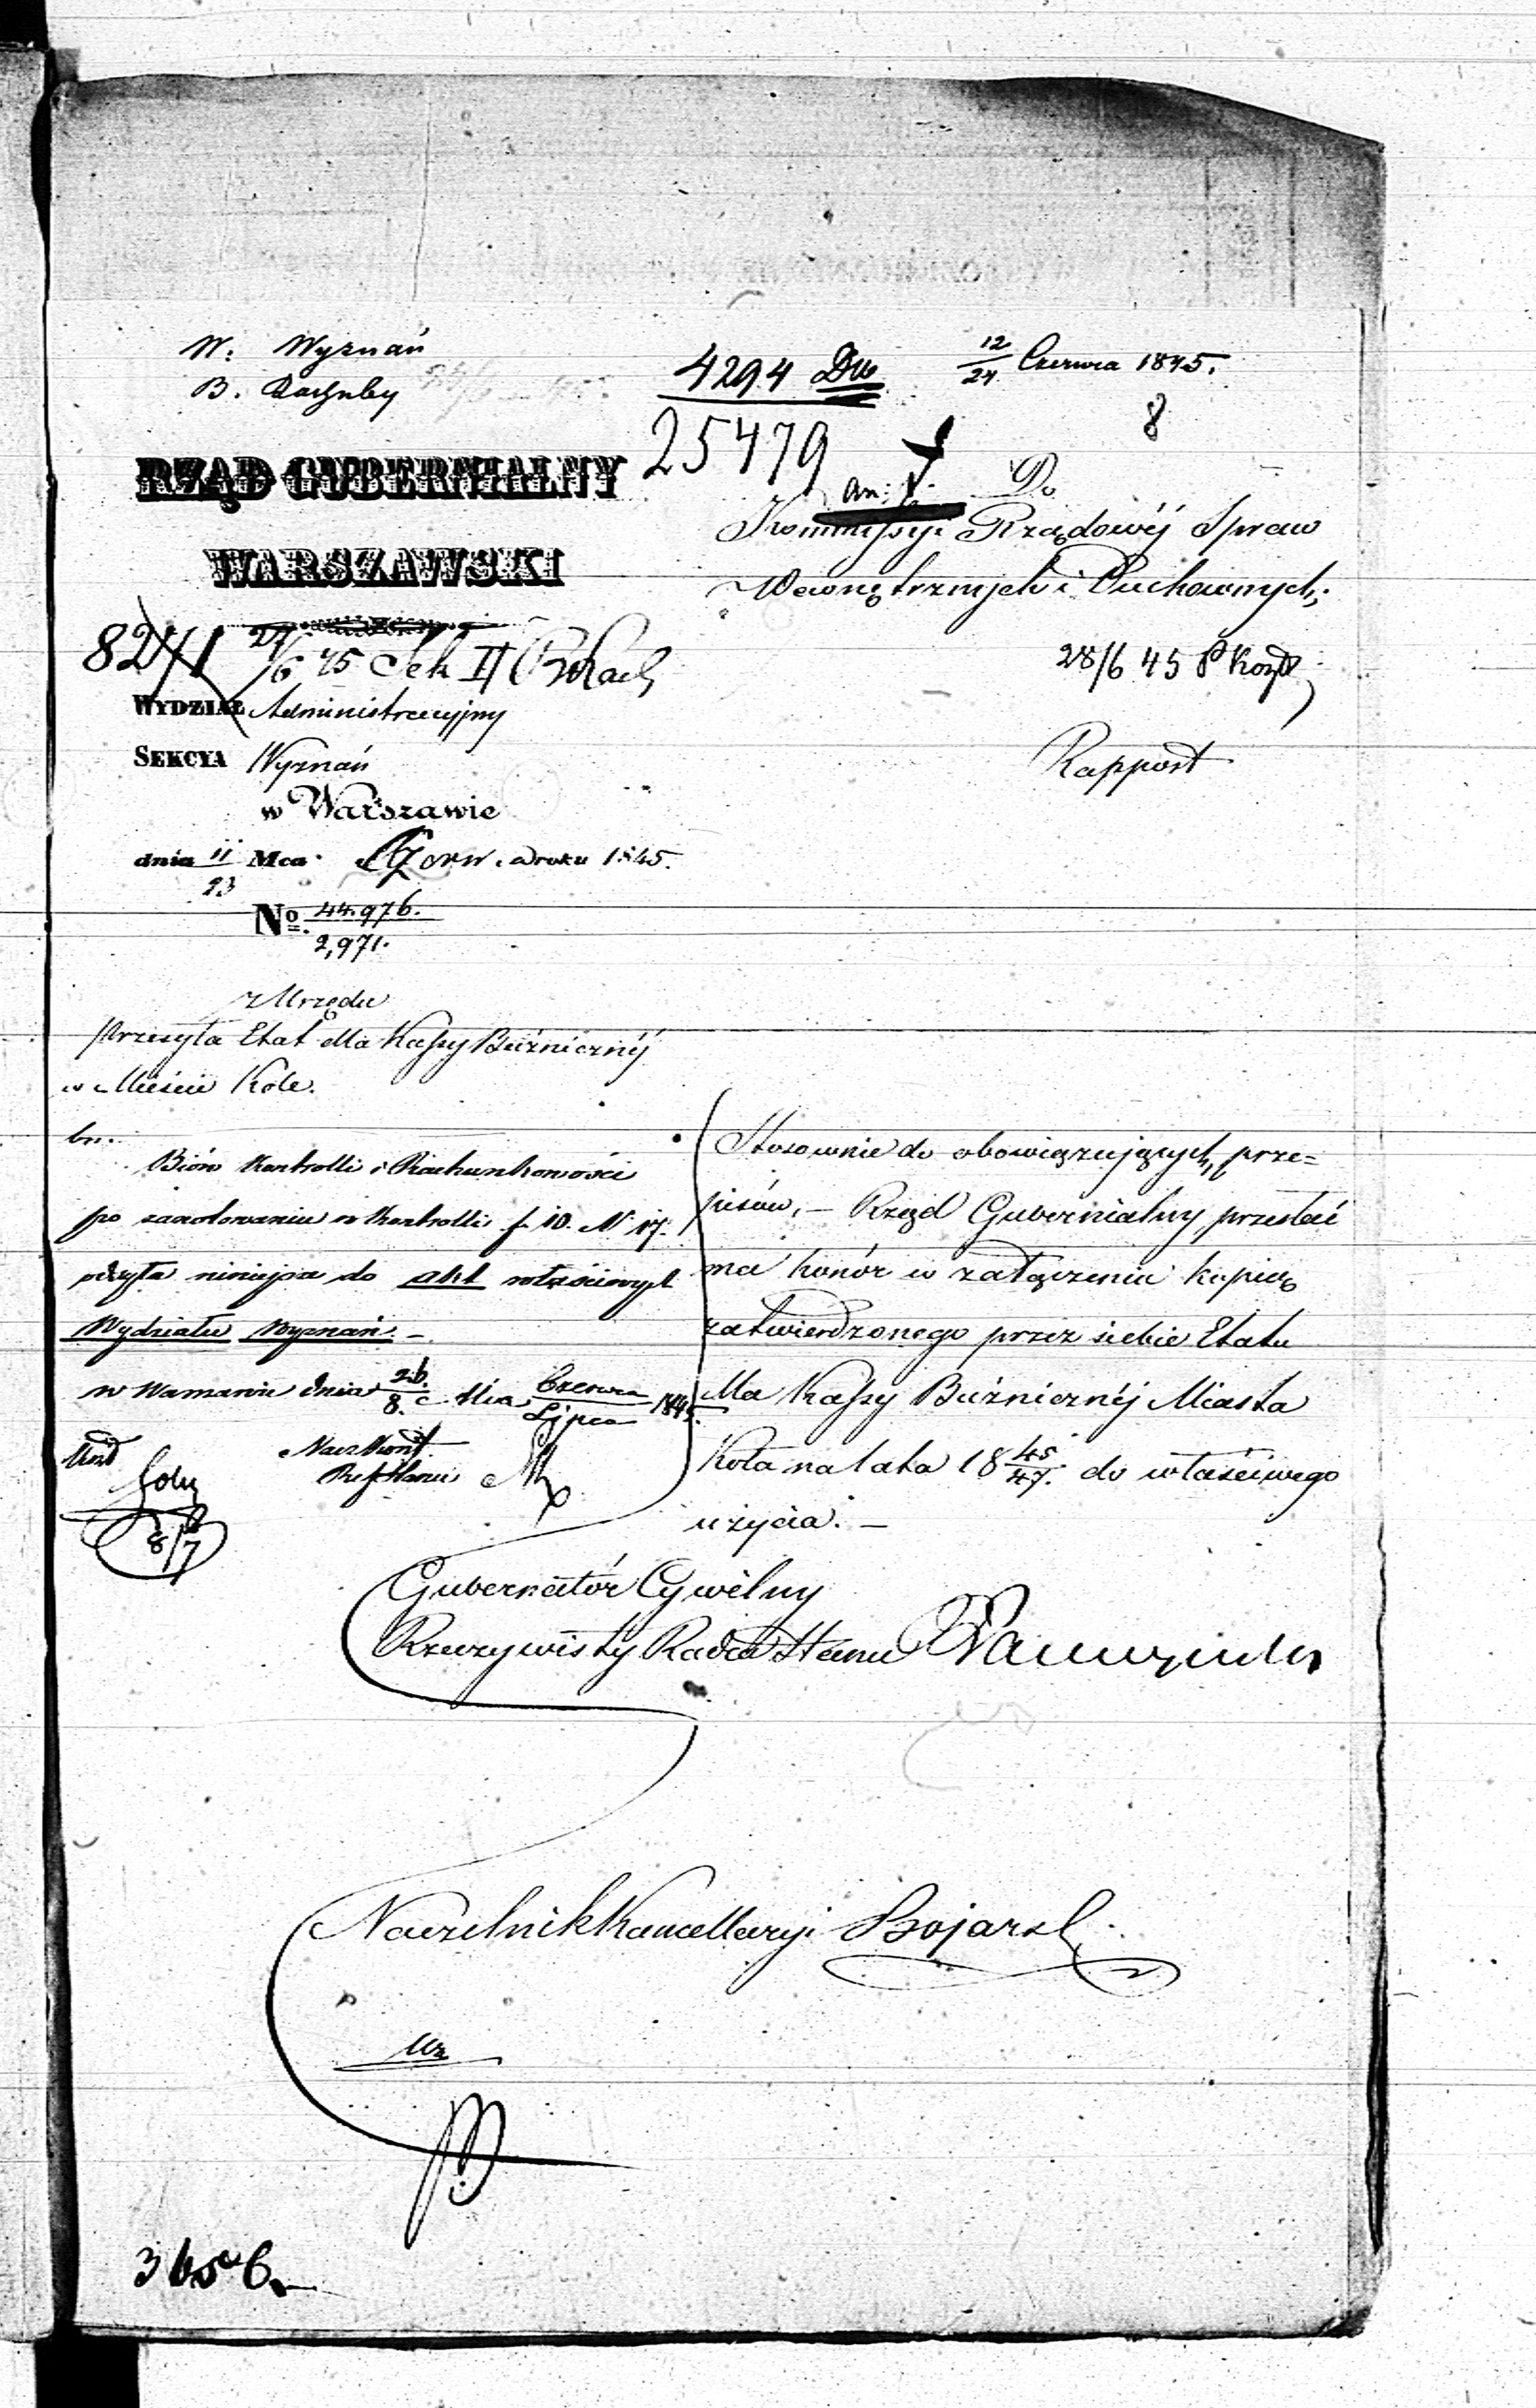 W. Wyznań
B. Rachuby
4294 Dw
12/24 Czerwca 1845.
25479
8
RZĄD GUBERNIALNY
WARSZAWSKI
an: 1.
Do
Kommissyi Rządowéj Spraw
Wewnętrznych i Duchownych;
8241 27/6 45 Sek II
28/6 45
WYDZIAŁ Administracyjny
SEKCYA Wyznań
Rapport
w Warszawie
dnia 11/23 Mca Czerw. roku 1845.
No. 44.976./2,971.
z Urzędu
przesyła Etat dla Kassy Bużnicznéj
w Mieście Kole.
br.
Bióro Kontrolli i Rachunkowości
po zanotowaniu w Kontrolli f. 10. N 17.
odsyła niniejsze do akt właściwych
Wydziału Wyznań. –
w Warszawie dnia 26./8. Mca Czerwca/Lipca 1845.
Nacz Kont
8/7
Stosownie do obowiązujących prze=
pisów, – Rząd Gubernialny przesłać
ma honór w załączeniu kopią
zatwierdzonego przez siebie Etatu
dla Kassy Bużnicznéj Miasta
Koła na lata 18 45/47. do właściwego
użycia. –
Gubernatór Cywilny
Rzeczywisty Radca Stanu
Naczelnik Kancellaryi Bojarsk